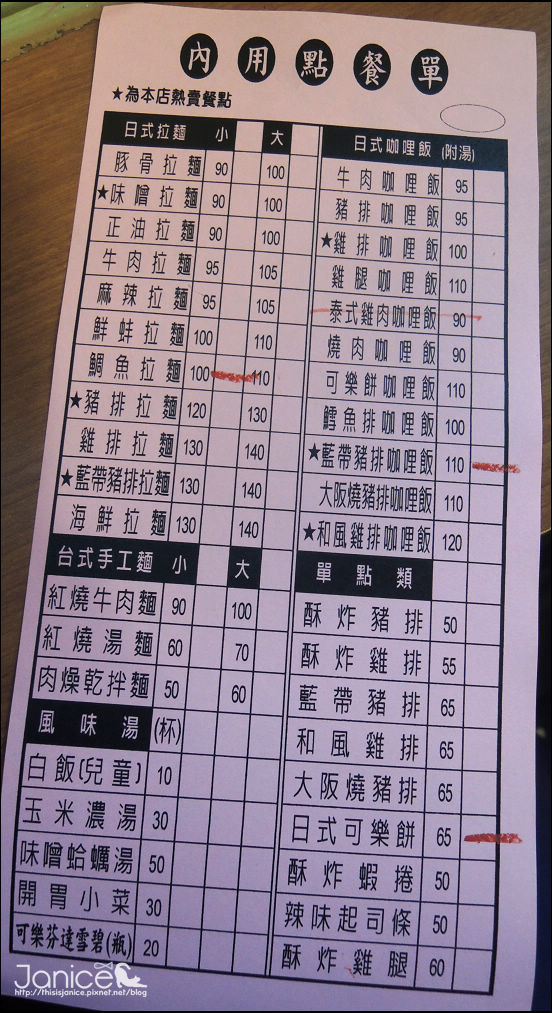 內用點餐單
★為本店熱賣餐點
日式拉麵 小 大
豚骨拉麵 90 100
★味噌拉麵 90 100
正油拉麵 90 100
牛肉拉麵 95 105
麻辣拉麵 95 105
鮮蚌拉麵 100 110
鯛魚拉麵 100 110
★豬排拉麵 120 130
雞排拉麵 130 140
★藍帶豬排拉麵 130 140
海鮮拉麵 130 140
台式手工麵 小 大
紅燒牛肉麵 90 100
紅燒湯麵 60 70
肉燥乾拌麵 50 60
風味湯 (杯)
白飯(兒童) 10
玉米濃湯 30
味噌蛤蠣湯 50
開胃小菜 30
可樂芬達雪碧(瓶) 20
日式咖哩飯 (附湯)
牛肉咖哩飯 95
豬排咖哩飯 95
★雞排咖哩飯 100
雞腿咖哩飯 110
泰式雞肉咖哩飯 90
燒肉咖哩飯 90
可樂餅咖哩飯 110
鱈魚排咖哩飯 100
★藍帶豬排咖哩飯 110
大阪燒豬排咖哩飯 110
★和風雞排咖哩飯 120
單點類
酥炸豬排 50
酥炸雞排 55
藍帶豬排 65
和風雞排 65
大阪燒豬排 65
日式可樂餅 65
酥炸蝦捲 50
辣味起司條 50
酥炸雞腿 60
Janice
http://thisisjanice.pixnet.net/blog